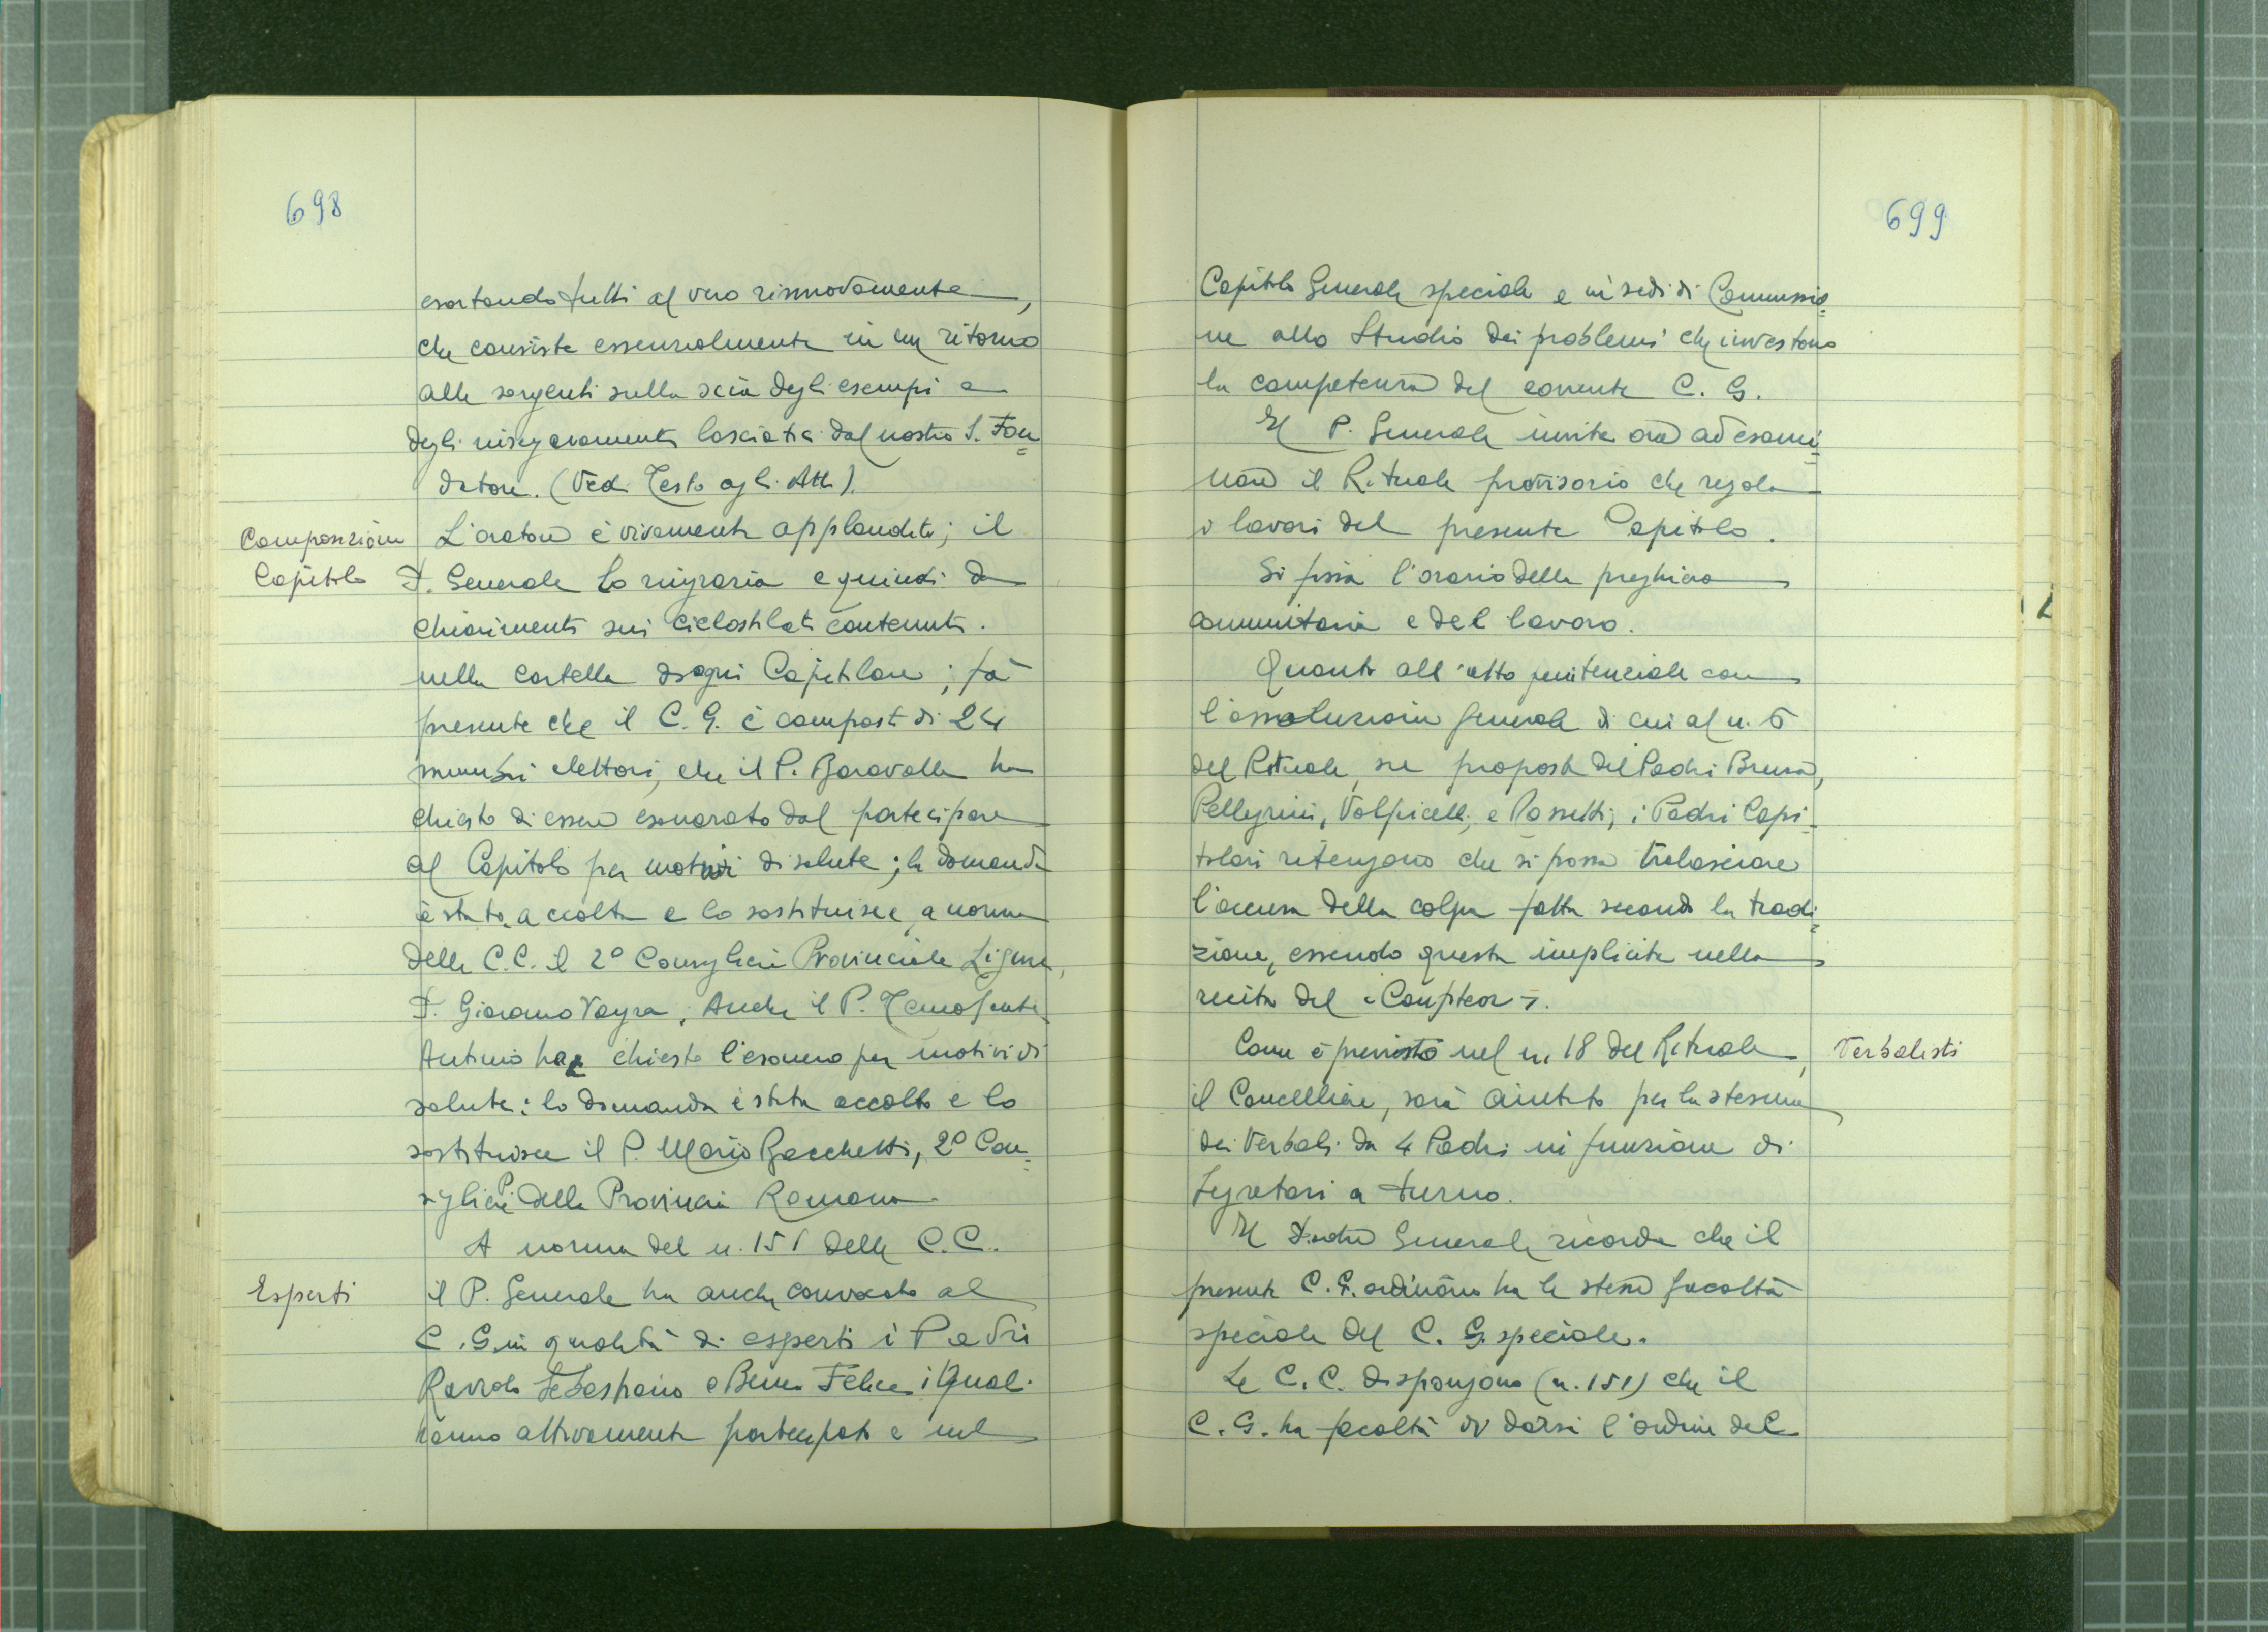 698
esortando tutti al vero rinnovamento,
che consiste essenzialmente in un ritorno
alle sorgenti sulla scia degli esempi e
degli insegnamenti lasciatici dal nostro S. Fon=
datore. (Vedi Testo agli Atti).
Composizione
Capitolo
L'oratore è vivamente applaudito; il
P. Generale lo ringrazia e quindi dà
chiarimenti sui ciclostilati contenuti
nella cartella di ogni Capitolare; fa
presente che il C. G. è composto di 24
membri elettori, che il P. Baravalle ha
chiesto di essere esonerato dal partecipare
al Capitolo per motivi di salute; la domanda
è stata accolta e lo sostituisce, a norma
delle C.C. il 2° Consigliere Provinciale Ligure,
P. Giordano Vayra. Anche il P. Temofonte
Antonio ha chiesto l'esonero per motivi di
salute: la domanda è stata accolta e lo
sostituisce il P. Mario Bacchetti, 2° Con=
sigliere P. della Provincia Romana.
A norma del n. 151 delle C.C.
Esperti
il P. Generale ha anche convocato al
C. G. in qualità di esperti i Padri
Raviolo Sebastiano e Beneo Felice i quali
hanno attivamente partecipato e nel
699
Capitolo Generale speciale e in sedi di Commissio=
ne allo studio dei problemi che investono
la competenza del corrente C. G.
Il P. Generale invita ora ad esami=
nare il Rituale provvisorio che regola
i lavori del presente Capitolo.
Si fissa l'orario della preghiera
comunitaria e del lavoro.
Quanto all'atto penitenziale con
l'assoluzione generale di cui al n. 5
del Rituale, su proposta dei Padri Brusa,
Pellegrini, Volpicelli, e Rossetti, i Padri Capi=
tolari ritengono che si possa tralasciare
l'accusa della colpa fatta secondo la tradi=
zione, essendo questa implicita nella
recita del «Confiteor».
Verbalisti
Come è previsto nel n. 18 del Rituale,
il Cancelliere, sarà aiutato per la stesura
dei Verbali da 4 Padri in funzione di
Segretari a turno.
Il Padre Generale ricorda che il
presente C. G. ordinario ha le stesse facoltà
speciale del C. G. speciale.
Le C. C. dispongono (n. 151) che il
C. G. ha facoltà di darsi l'ordine del